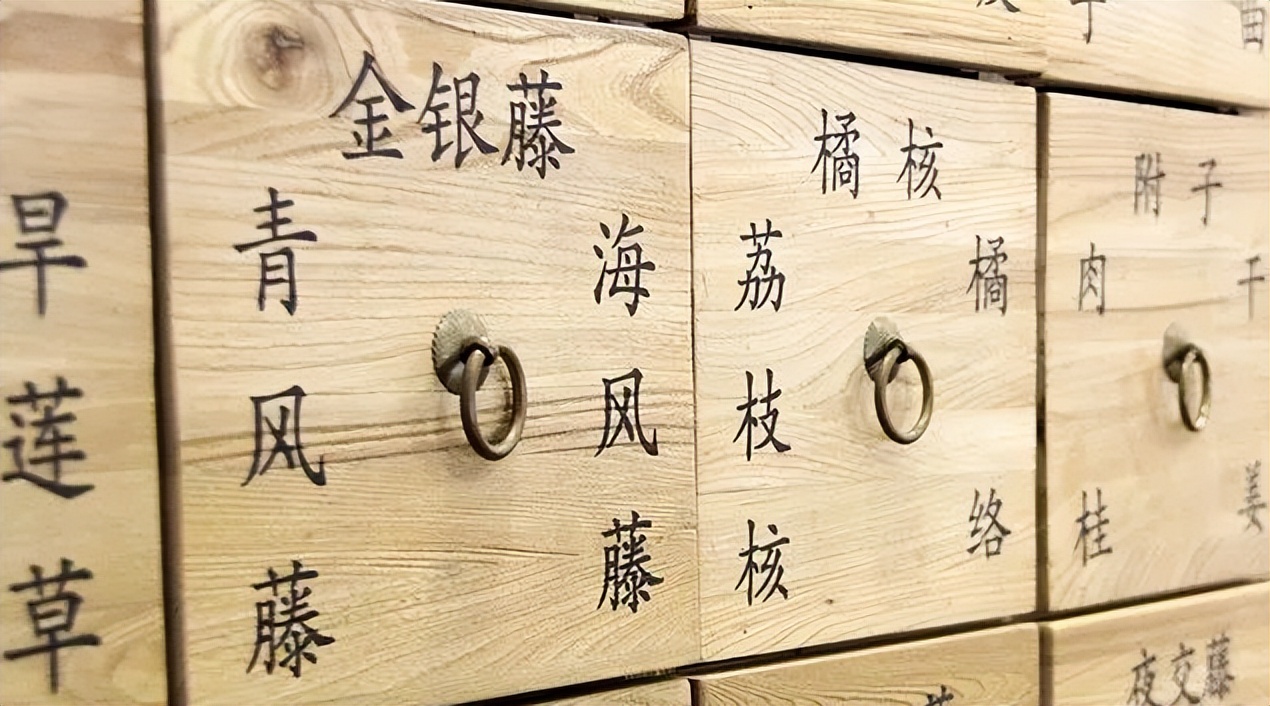 旱莲草
金银藤
青风藤
海风藤
橘核
荔枝核
橘络
附子
肉桂
干姜
夜交藤